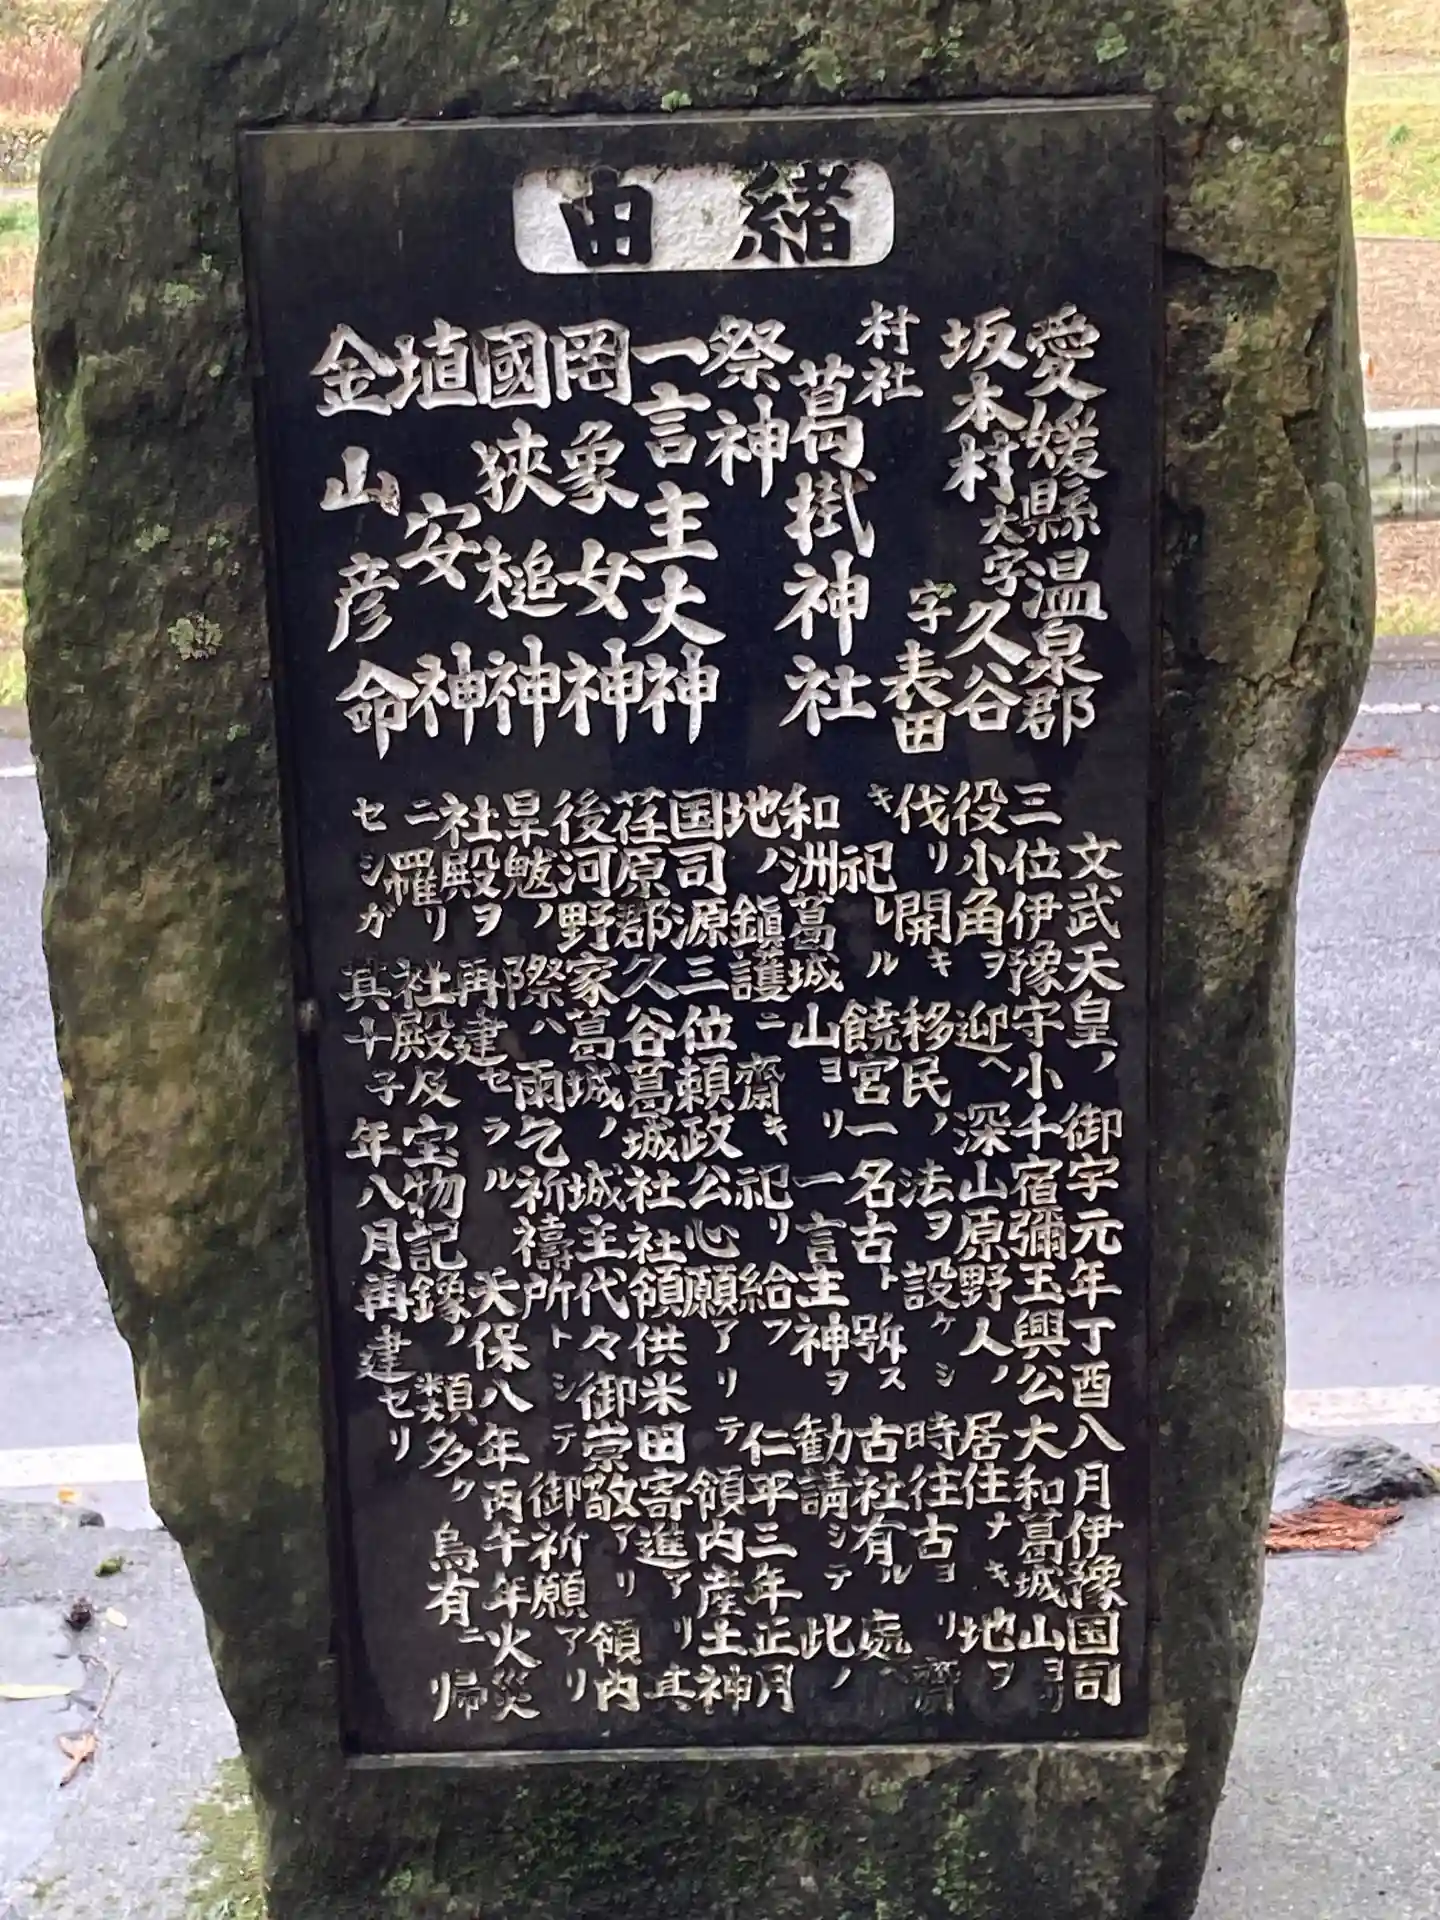 緒由
愛媛縣温泉郡
坂本村大字久谷
字表田
村社
葛掛神社
祭神
一言主大神
罔象女神
國狹槌神
埴安神
金山彦命
文武天皇ノ御宇元年丁酉八月伊豫国司
三位伊豫守小千宿彌玉興公大和葛城山ヨリ
役小角ヲ迎ヘ深山原野人ノ居住ナキ地ヲ
伐リ開キ移民ノ法ヲ設ケシ時往古ヨリ齊
キ祀レル饒宮一名古ト号ス古社有ル處ヘ
和洲葛城山ヨリ一言主神ヲ勧請シテ此ノ
地ノ鎮護ニ齋キ祀リ給フ仁平三年正月
国司源三位頼政公心願アリテ領内産土神
荏原郡久谷葛城社社領供米田寄進アリ其
後河野家葛城ノ城主代々御崇敬アリ領内
旱魃ノ際ハ雨乞祈禱所トシテ御祈願アリ
社殿ヲ再建セラル天保八年丙午年火災
ニ罹リ社殿及宝物記録ノ類多ク烏有ニ帰
セシガ其十子年八月再建セリ